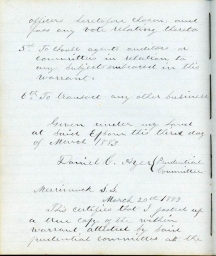 officers heretofore chosen and
pass any vote relating thereto
5th To choose agents auditors or
committees in relation to
any subject embraced in this
warrant.
6th To transact any other business
Given under my hand
at said Epsom this third day
of March 1893
Daniel C. Ayer } Prudential
Committee
Merrimack S.S.
March 20th 1893
This certifies that I posted up
a true copy of the within
warrant attested by said
prudential committee at the